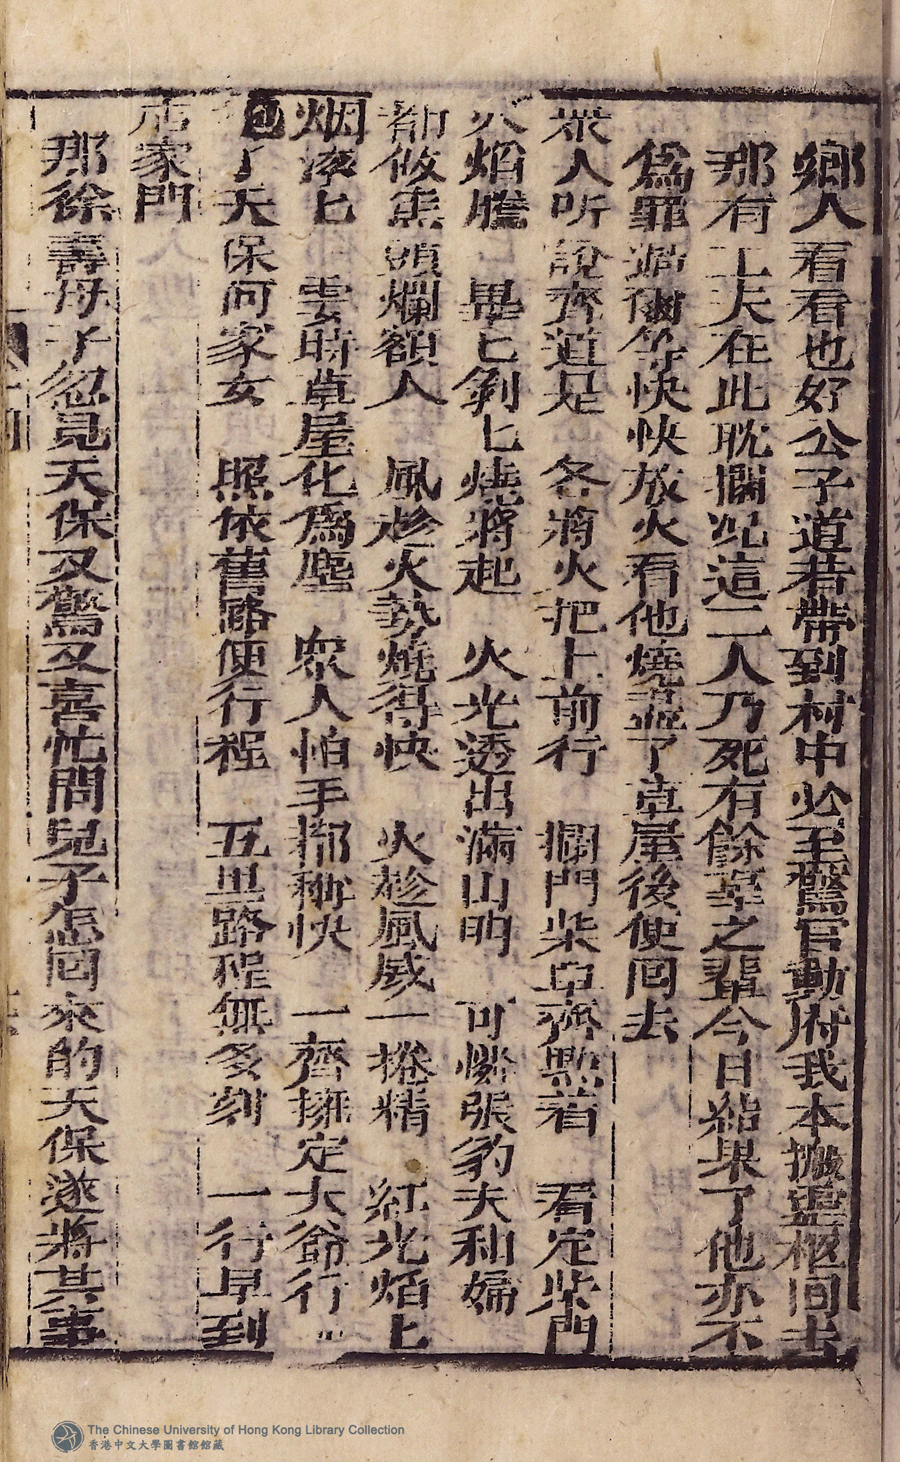 鄉人看看也好公子道若帶到村中必至驚官動府我本搬靈柩回去
那有工夫在此耽擱況這二人乃死有餘辜之輩今日結果了他亦不
爲罪過爾等快快放火看他燒盡了草屋後便囘去
衆人听說齊道是 各將火把上前行 攔門柴草齊點着 看定柴門
火焰騰匕 畢匕剝匕燒將起 火光透出滿山明 可憐張豹夫和婦
都做焦頭爛額人 風趁火勢燒得快 火趁風威一捲精 紅光焰匕
烟滾匕 霎時草屋化爲塵 衆人怕手都稱快 一齊擁定大爺行
了天保何家女 照依舊路便行程 五里路程無多刻 一行早到
店家門
那徐壽母子忽見天保又驚又喜忙問兒子怎囘來的天保遂將其事
The Chinese University of Hong Kong Library Collection
香港中文大學圖書館館藏